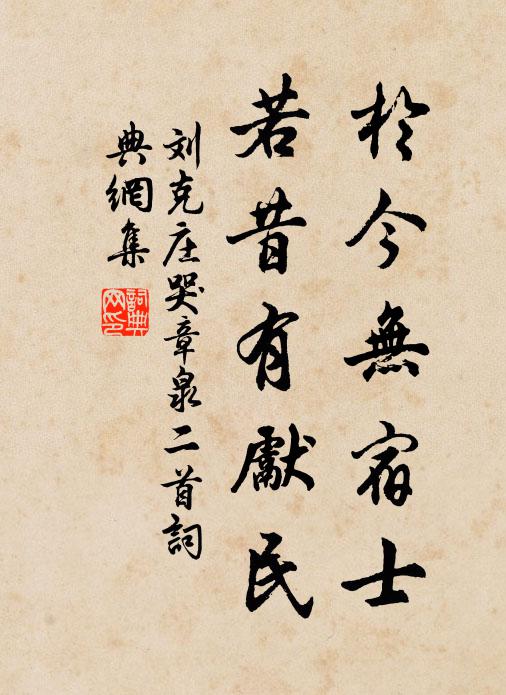 於今無宿士
若昔有獻民
刘克庄哭章泉二首詞
典網集
詞典網印